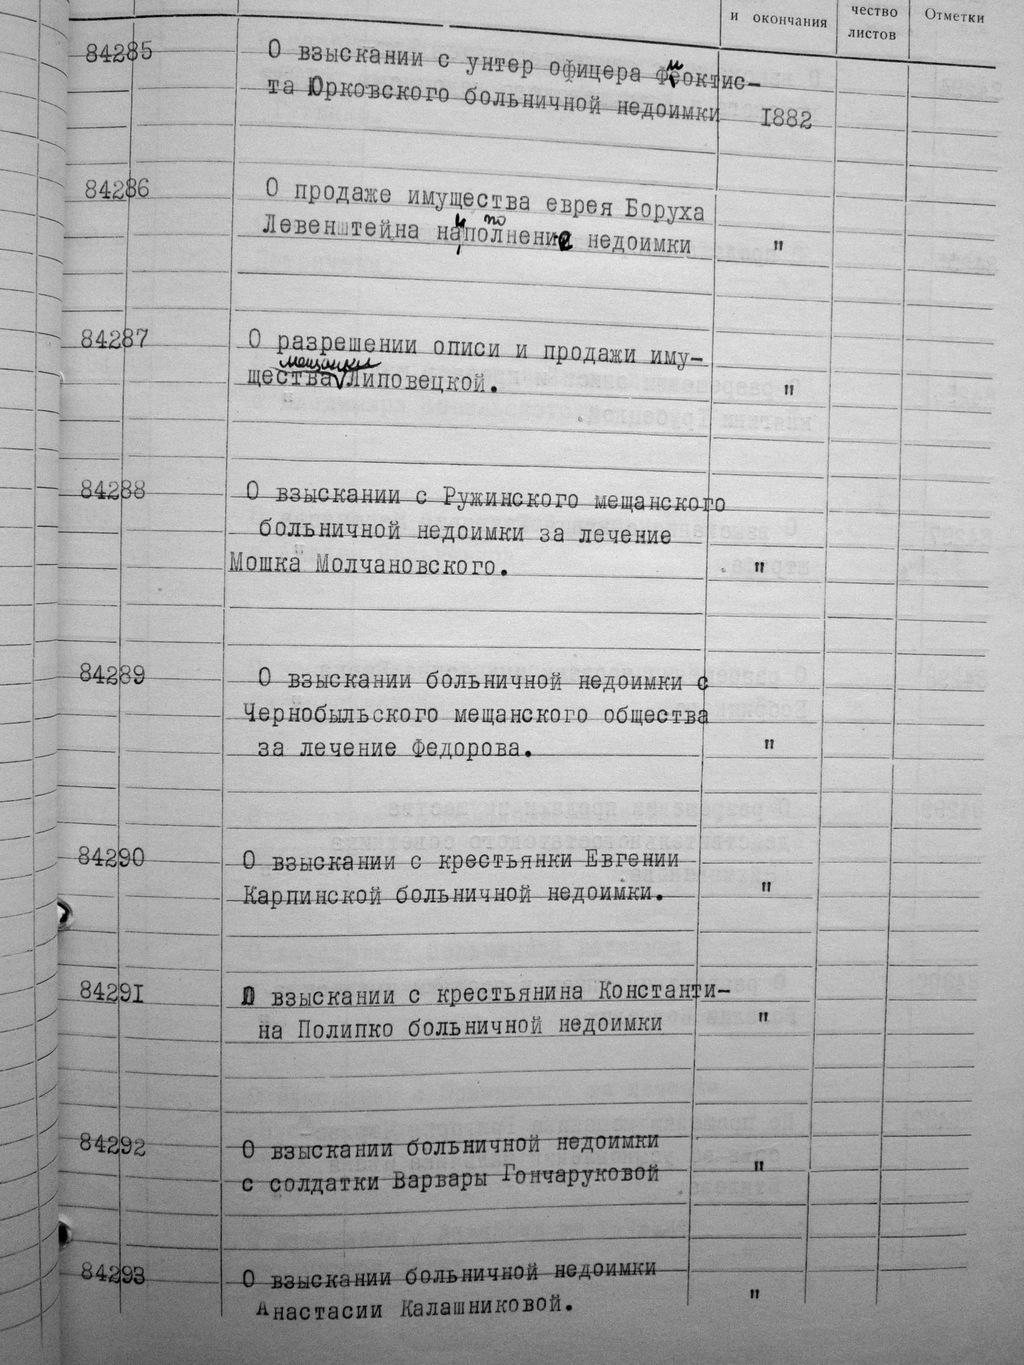 и окончания
чество
листов
Отметки
84285
О взыскании с унтер офицера Феоктис-
та Юрковского больничной недоимки 1882
84286
О продаже имущества еврея Боруха
Левенштейна на пополнение недоимки "
84287
О разрешении описи и продажи иму-
мещанки
щества Липовецкой. "
84288
О взыскании с Ружинского мещанского
больничной недоимки за лечение
Мошка Молчановского. "
84289
О взыскании больничной недоимки с
Чернобыльского мещанского общества
за лечение Федорова. "
84290
О взыскании с крестьянки Евгении
Карпинской больничной недоимки. "
84291
О взыскании с крестьянина Константи-
на Полипко больничной недоимки "
84292
О взыскании больничной недоимки
с солдатки Варвары Гончаруковой "
84293
О взыскании больничной недоимки
Анастасии Калашниковой. "